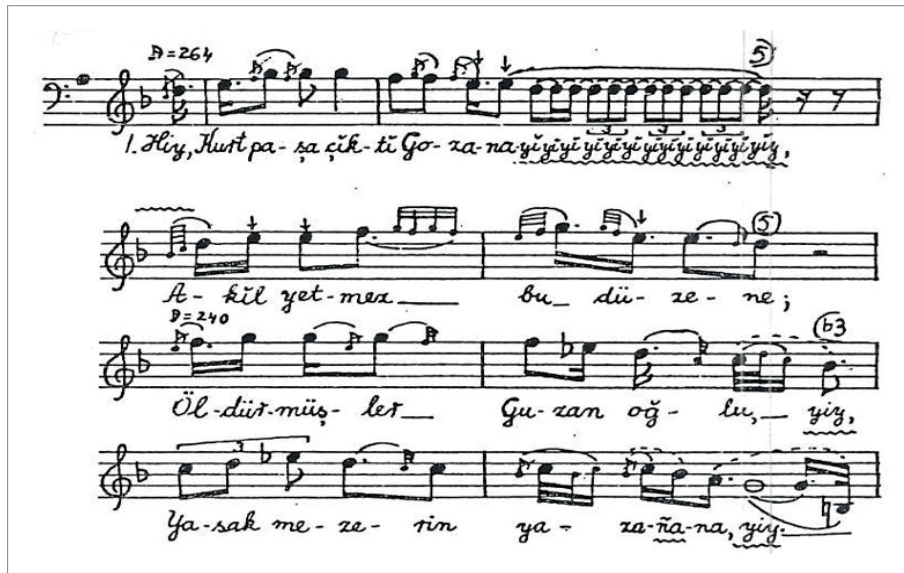 ♪=264
5)
1. Hiy, Kurt pa-şa çik-ti Go-za-na-yiyiyiyiyiyiyiyiyiyiyiyiy,
3 3 3
5
A-kil yet-mez___ bu_ dü-ze-ne;
♪=240
b3
Öl-dür-müş-ler__ Gu-zan oğ-lu,__ yiy,
3
Ya-sak me-ze-rin ya-za-ña-na, yiy.___